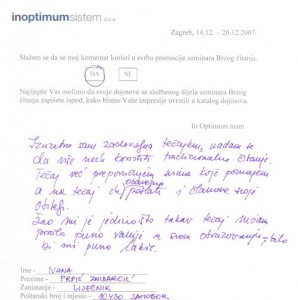 inoptimumsistem d.o.o.
Zagreb, 14.12. – 20.12.2007.
Slažem se da se moj komentar koristi u svrhu promocije seminara Brzog čitanja.
DA NE
Najljepše Vas molimo da svoje dojmove sa službenog dijela seminara Brzog
čitanja zapišete ispod, kako bismo Vaše impresije uvrstili u katalog dojmova.
In Optimum team
Izuzetno sam zadovoljna tečajem, nadam se
da više neću koristiti tradicionalno čitanje.
Tečaj već preporučujem svima koje poznajem
a na tečaj ću osobno poslati i članove svoje
obitelji.
Žao mi je jedino što takav tečaj nisam
prošla puno ranije u svom obrazovanju - bilo
bi mi puno lakše.
Ime - IVANA
Prezime - PRPIĆ ZNIDARČIĆ
Zanimanje - LIJEČNIK
Poštanski broj i mjesto - 10430 SAMOBOR